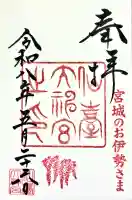 奉拝
宮城のお伊勢さま
仙臺
大神宮
之印
令和八年五月二十三日